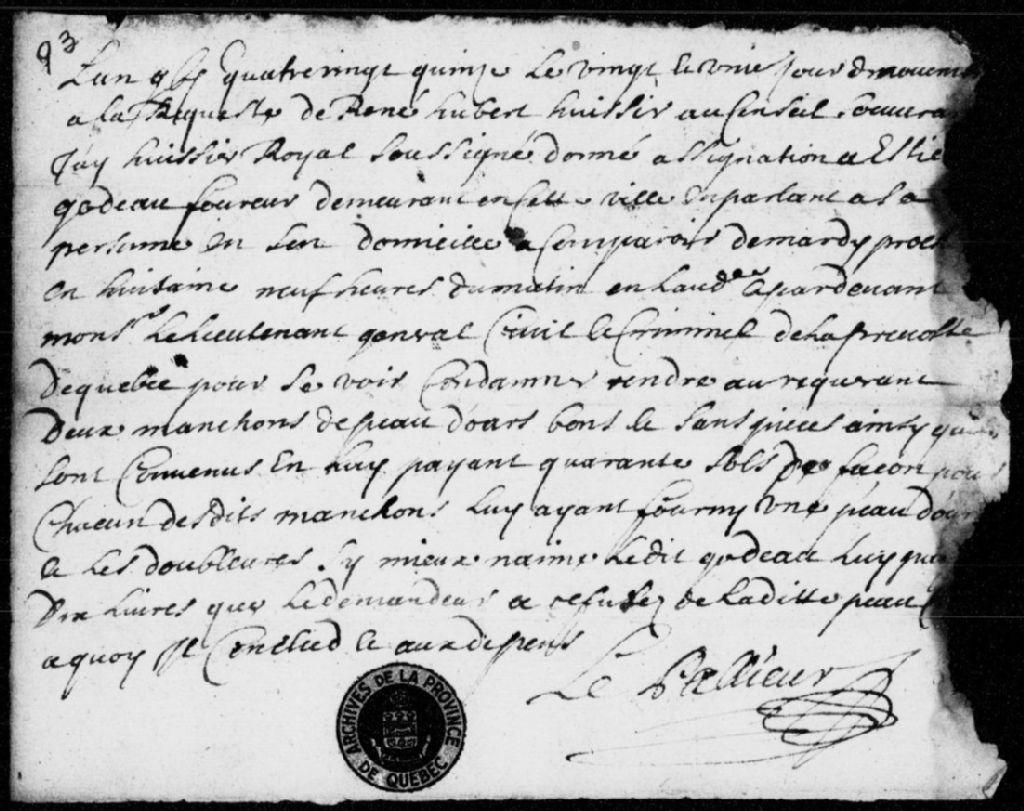 93
Lan gbj Quatrevingt quinze le vingt et unie jour dnovem
a la Requeste de René hubert huissier au Conseil souvera
Jay huissier Royal soussigné donné assignation a Estie
godeau foureur demeurant en Cette ville enparlant a sa
personne en son domicille a Comparoir demardy proch
en huitaine neuf heures du matin en Laudce et pardevant
monsr le Lieutenant general Civil et Criminel de la prevosté
de quebec pour se voir Condamner rendre au requerant
Deux manchons de peau dours bons et sans pieces ainsy quil
sont Convenus en luy payant quarante sols de façon pour
Chacun desdits manchons luy ayant fourny une peau dours
et les doubleures. sy mieux naime ledit godeau luy
Dix livres que le demandeur a refusez de laditte peau
a quoy il Conclud et aux despens
Le Pallieur
ARCHIVES DE LA PROVINCE DE QUÉBEC